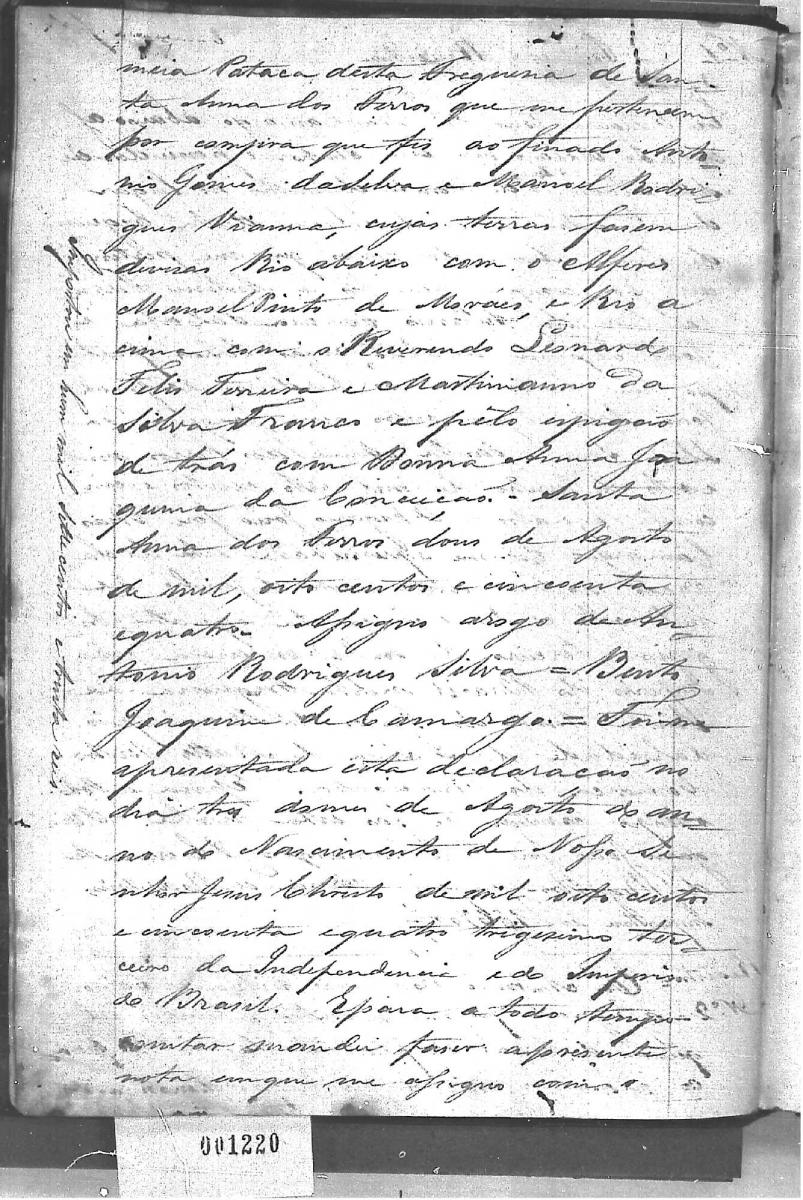 meia Pataca desta Freguesia de San-
ta Anna dos Ferros que me pertencem
por compra que fis ao finado Anto-
nio Gomes dadelva e Manoel Rodri-
gues Vianna, cujas terras fasem
devisas Rio abaixo com o Alferes
Manoel Pinto de Moráes, e Rio a
cima com o Reverendo Leonardo
Felis Ferreira e Martimianno da
Silva Franco e pêlo espigão
de trás com Donna Anna Joa
quina da Conceicão. - Santa
Anna dos Ferros dous de Agosto
de mil, oito centos e cincoenta
equatro. Assigno arogo de An-
tonio Rodrigues Silva = Bento
Joaquim de Camargo. = Foi me
apresentada esta declaracão no
dia tres domes de Agosto do an-
no do Nascimento de Nosso Se
nhor Jesus Christo de mil oito centos
e cincoenta equatro trigesimo ter-
ceiro da Independencia e do Imperio
do Brasil. Epara a todo tempo
constar mandei faser apresente
nota emque me assigno com o
Importou em hum mil sette centos e trinta reis.
001220